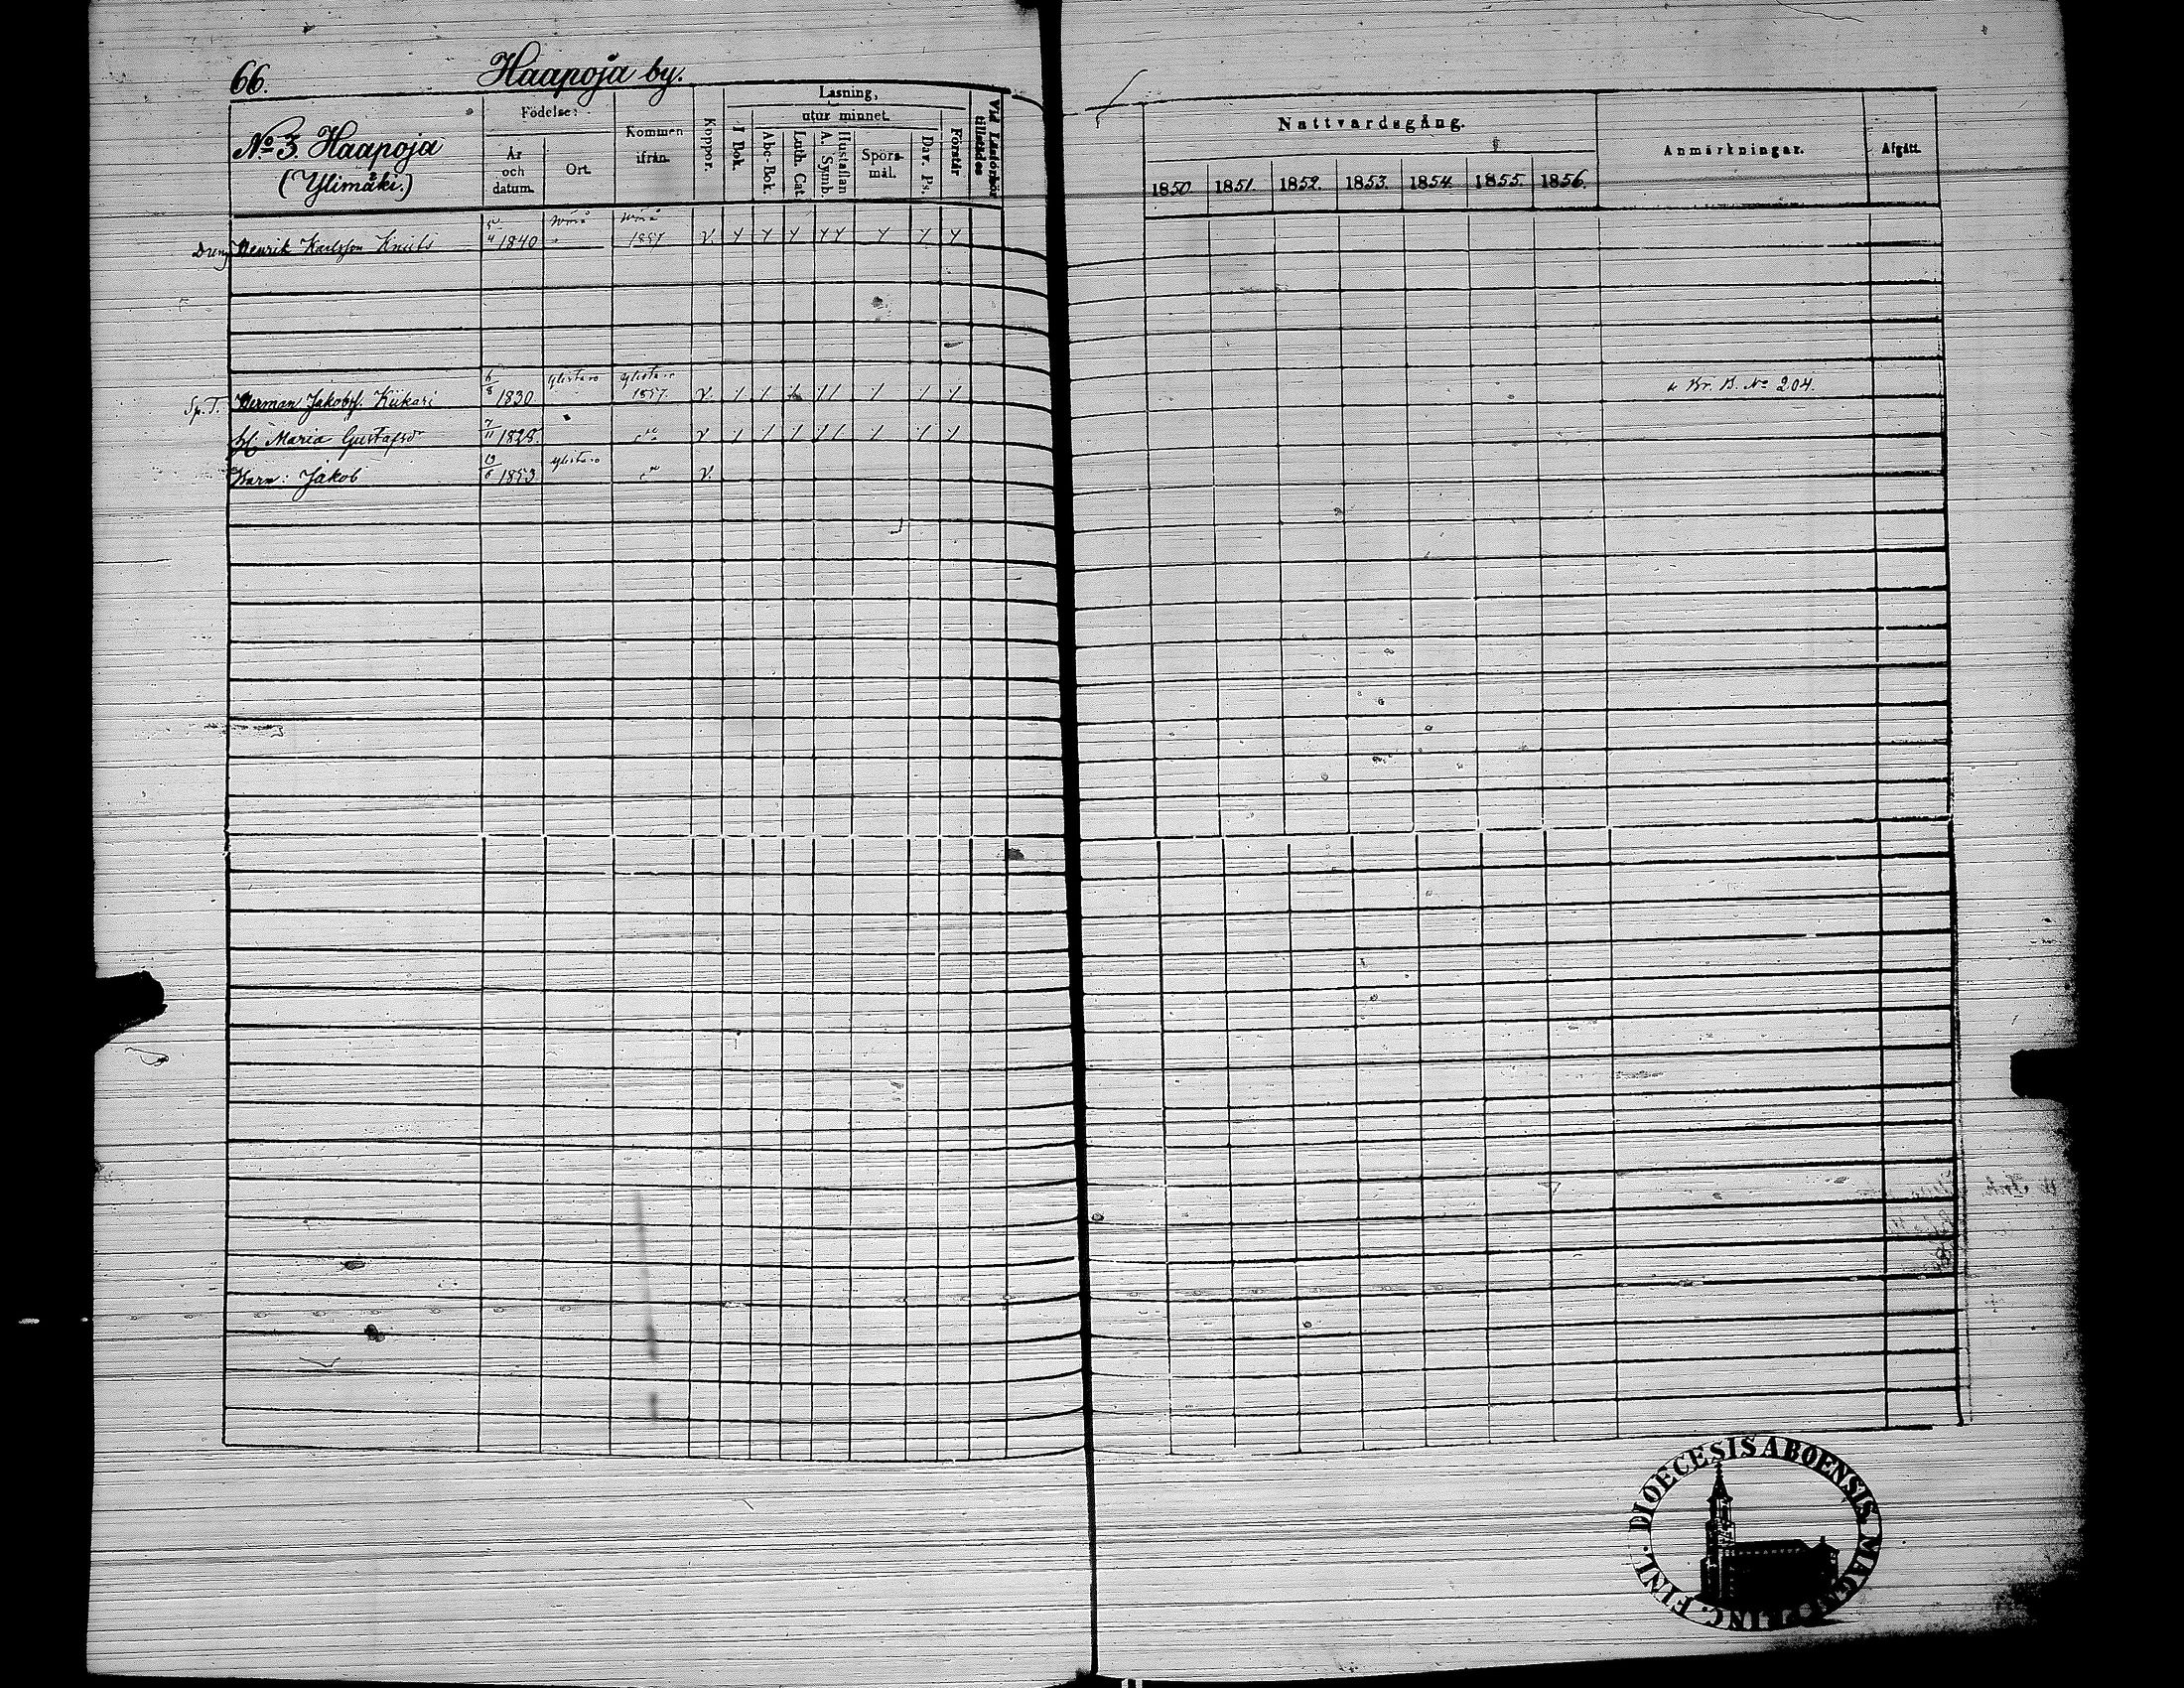 66. Haapoja by.
No 3. Haapoja
(Ylimäki.)
Födelse:
År och datum.
Ort.
Kommen ifrån
Koppor.
Läsning,
I Bok.
utur minnet
Abc-Bok.
Luth. Cat.
A. Symb.
Hustaflan
Spörs-mål.
Dav. Ps.
Förstår
Vid Läsförhör tillstädes
Nattvardsgång.
1850. 1851. 1852. 1853. 1854. 1855. 1856.
Anmärkningar.
Afgått.
Dreng Henrik Karlsson 1840 1857 V.
Sp. T. Herman Jakobss. Kiikari 6/8 1830 Ylistaro Ylistaro 1857 V. Kr. B. No 204.
H. Maria Gustafsdr 7/11 1828. do V
Barn: Jakob 19/6 1853 Ylistaro do V.
DIOECESIS ABOENSIS MAGN. PRINC. FINL.